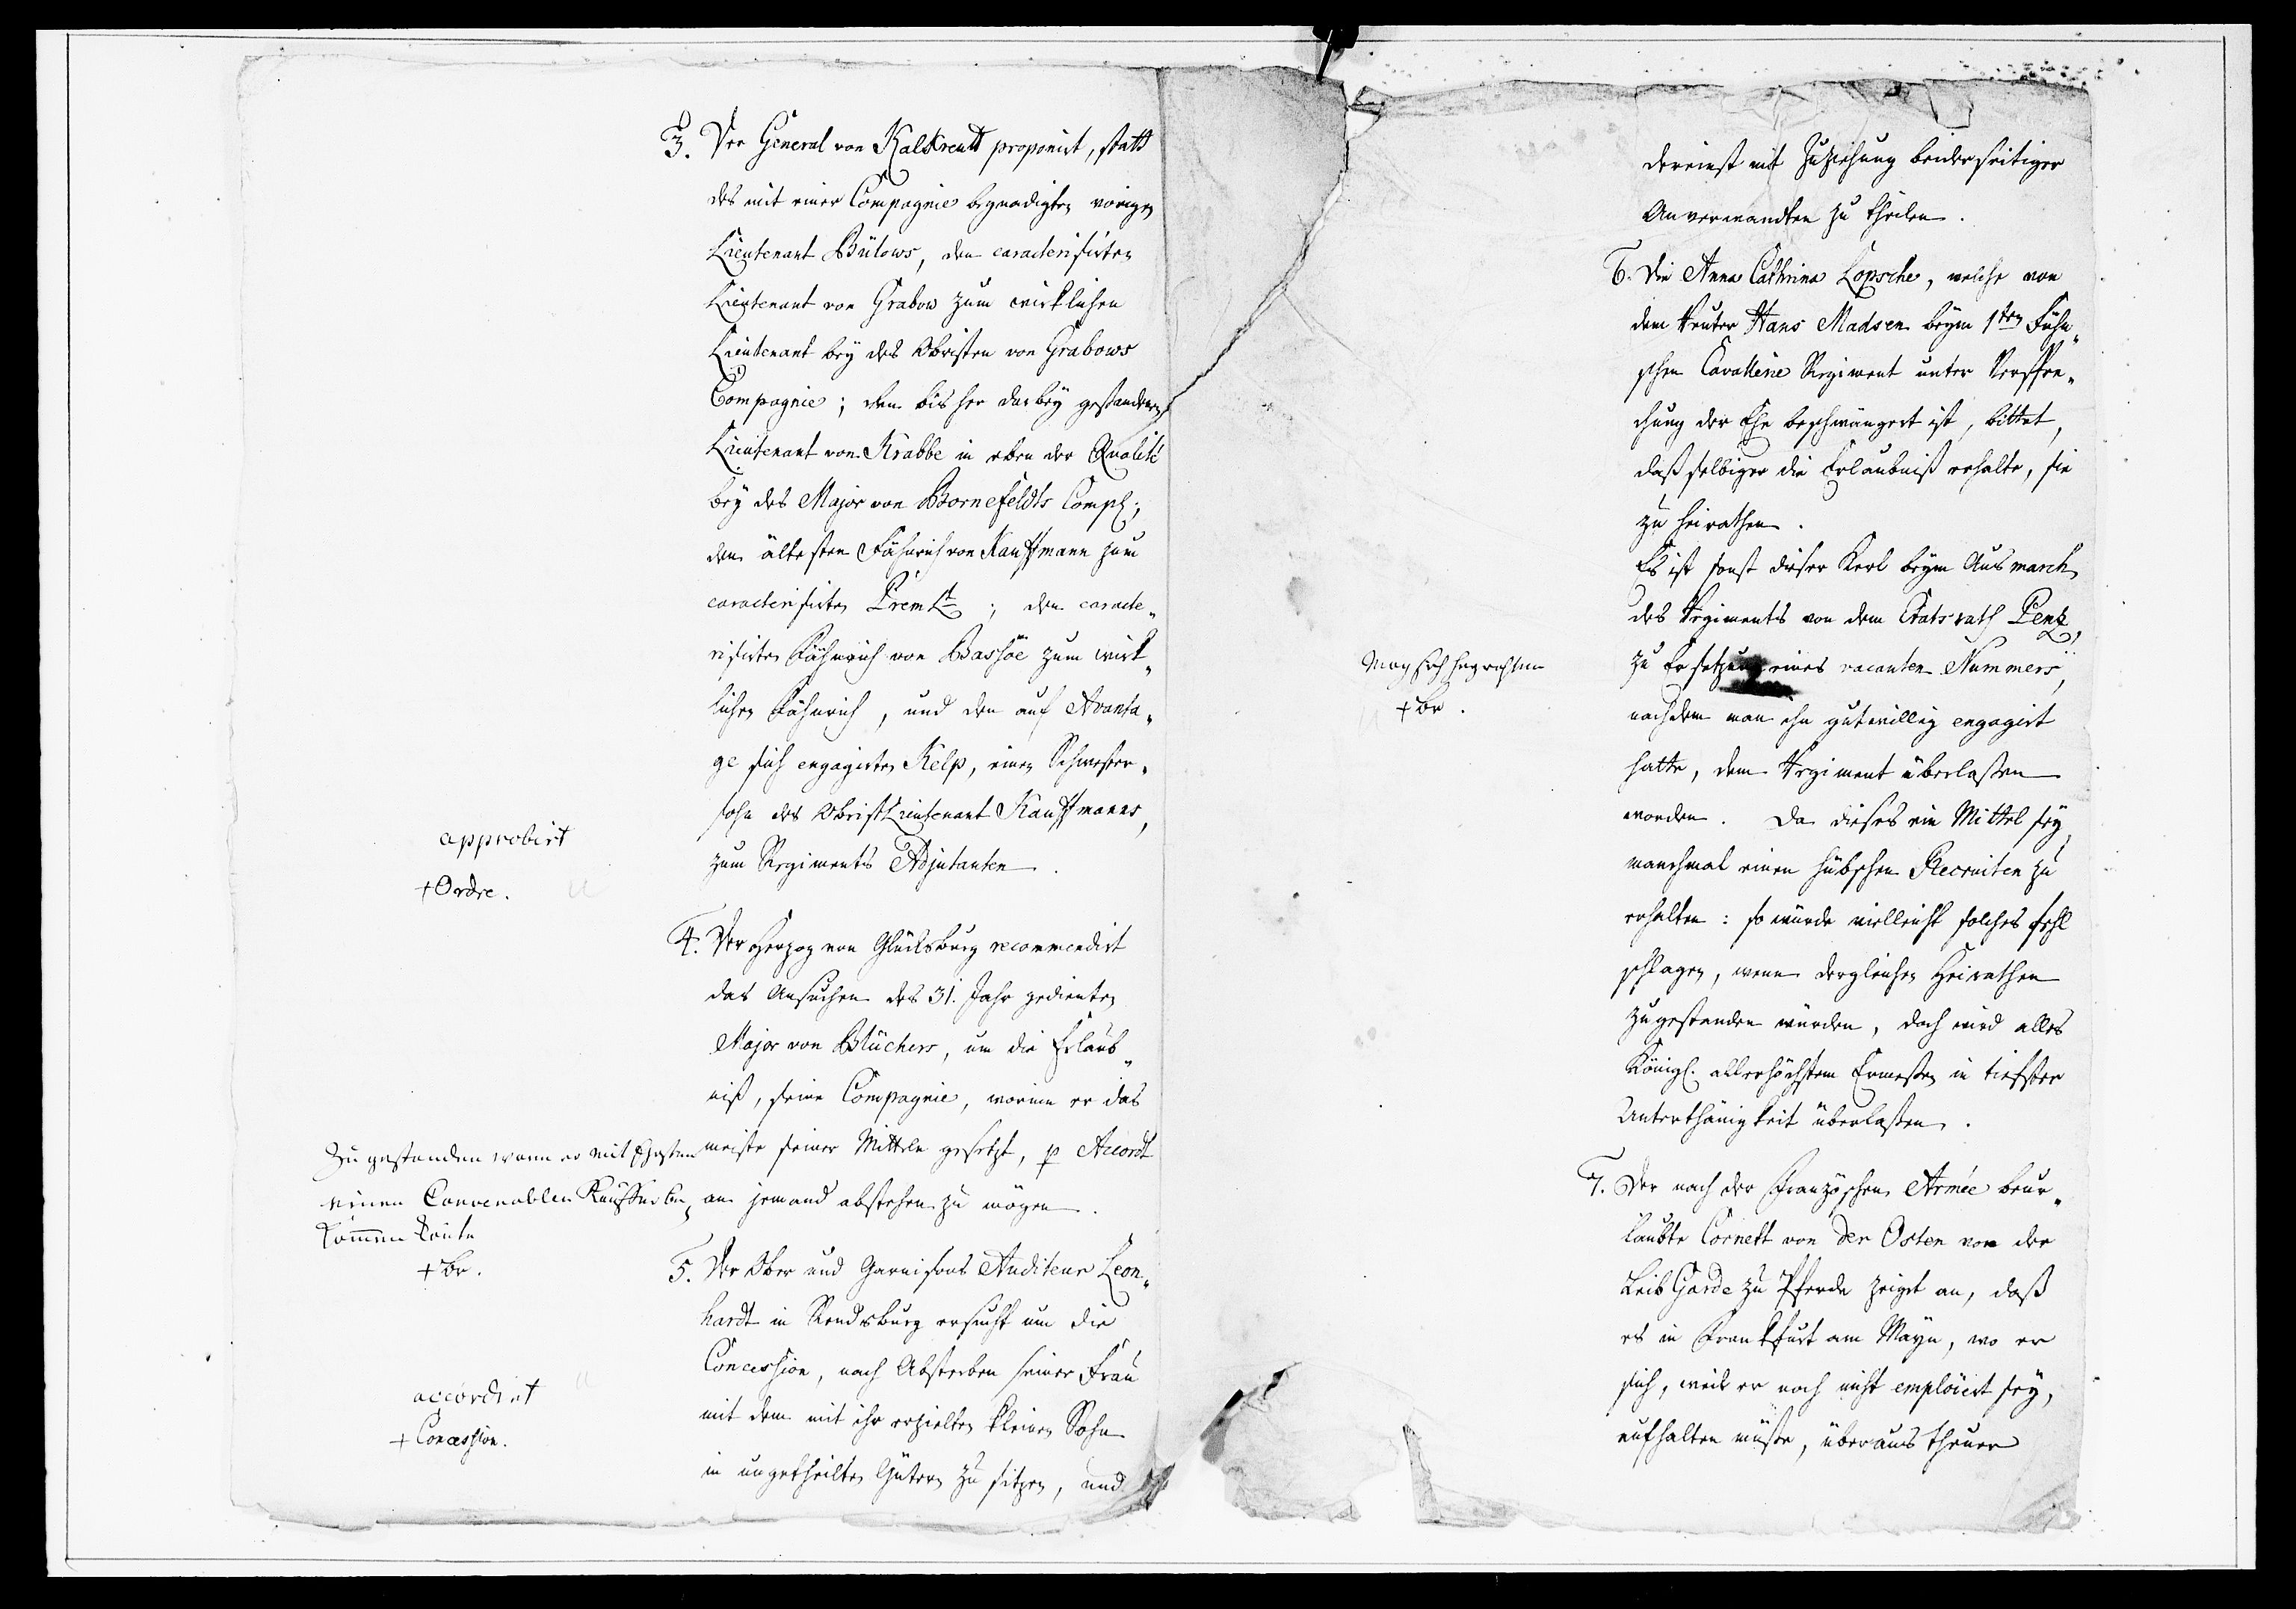 3. Der General von Kalkreutt proponirt, statt
des mit einer Compagnie begnadigten vorigen
Lieutenant Bülows, den caracterisirten
Lieutenant von Grabow zum wirklichen
Lieutenant bey des Obristen von Grabows
Compagnie; den bisher darbey gestandenen
Lieutenant von Krabbe in eben der Qualité
bey des Major von Bornefeldts Comp;
den ältesten Fähnrich von Kauffmann zum
caracterisirten PremLt; den caracte„
risirten Fähnrich von Bassöe zum wirk„
lichen Fähnrich, und den auf Avanta„
ge sich engagirten Kelp, einen Schwester„
sohn des ObristLieutenant Kauffmanns,
zum Regiments Adjutanten.
approbirt
+ Ordre.
4. Der Herzog von Glücksburg recommendirt
das Ansuchen des 31. Jahr gedienten
Major von Blüchers, um die Erlaub„
niß, seine Compagnie, worinn er das
meiste seiner Mitteln gesetzt, p Accordt
an jemand abstehen zu mögen.
Zugestanden wann er mit
einen Convenablen
kommen könte
+ br.
5. Der Ober und Garnisons Auditeur Leon„
hardt in Rendsburg ersucht um die
Concession, nach Absterben seiner Frau
mit dem mit ihr erzielten kleinen Sohn
in ungetheilten Gütern zu sitzen, und
accordirt
+ Concession.
dereinst mit Zuziehung beiderseitiger
Anverwandten zu theilen.
6. Die Anna Cathrina Lopsche, welche von
dem Reuter Hans Madsen beym 1ten Fühn„
schen Cavallerie Regiment unter Verspre„
chung der Ehe beschwängert ist, bittet,
daß selbiger die Erlaubniß erhalte, sie
zu heirathen.
Es ist sonst dieser Kerl beym Ausmarch
des Regiments von dem Etatsrath Pentz,
zu Ersetzung eines vacanten Nummers,
nachdem man ihn gutwillig engagirt
hatte, dem Regiment überlaßen
worden. Da dieses ein Mittel sey,
manchmal einen hübschen Recruiten zu
erhalten: so würde vielleicht solches fehl
schlagen, wenn dergleichen Heirathen
zugestanden würden, doch wird alles
Königl. allerhöchstem Ermeßen in tiefster
Unterthänigkeit überlaßen.
Mag sich
+ br.
7. Der nach der Französchen Armée beur„
laubte Cornett von der Osten von der
Leib Garde zu Pferde zeiget an, daß
es in Frankfurt am Mayn, wo er
sich, weil er noch nicht emploiert sey,
aufhalten müße, überaus theuer